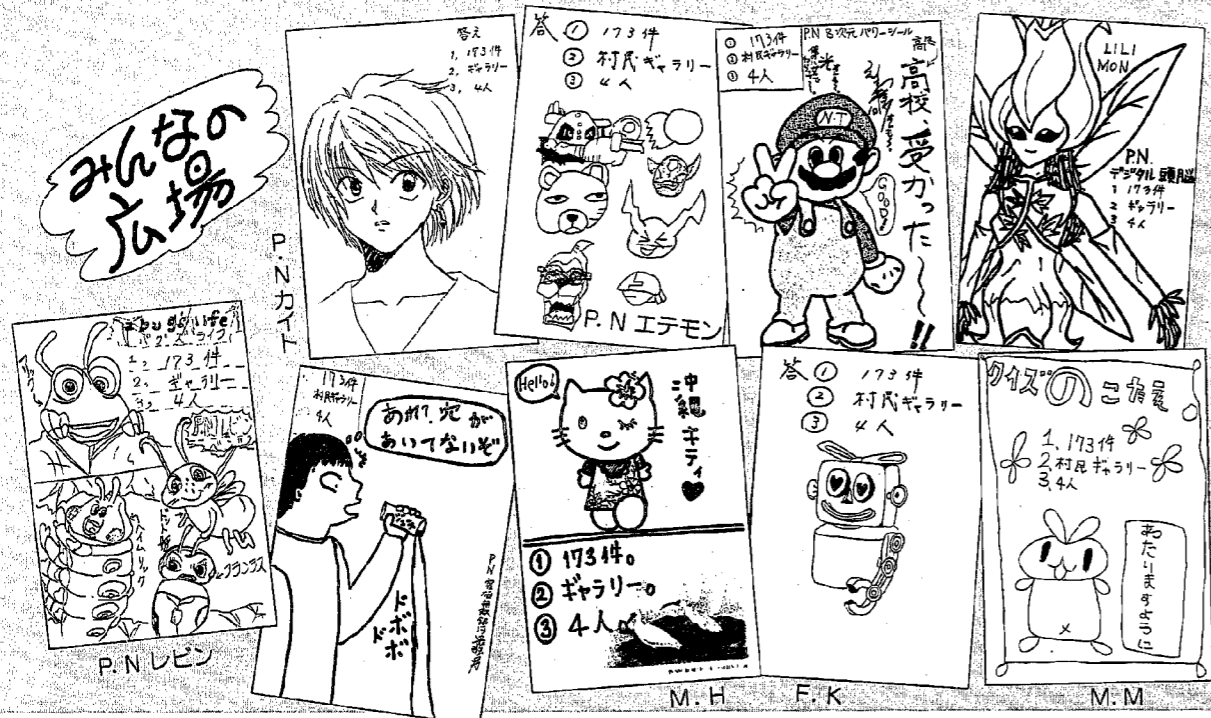 みんなの
広場
答え
1, 173件
2, ギャラリー
3, 4人
P.Nカイト
答 ① 173件
② 村民ギャラリー
③ 4人
P.N エテモン
① 173件
② 村民ギャラリー
③ 4人
P.N 8次元パワーシール
高校、受かった〜〜!!
GOOD!
N・T
LILI
MON
P.N.
デジタル頭脳
1 173件
2 ギャラリー
3 4人
a bug's life
バグズ・ライフ
1, 173件
2, ギャラリー
3, 4人
フリック
ハイムリック
フランシス
P.N レピン
173件
村民ギャラリー
4人
あれ?穴が
あいてないぞ
ドボボ
ドボ
Hello!
沖縄キティ
① 173件。
② ギャラリー。
③ 4人。
M.H
答 ① 173件
② 村民ギャラリー
③ 4人
F.K
クイズのこたえ
1. 173件
2. 村民ギャラリー
3. 4人
あたりますように
M.M